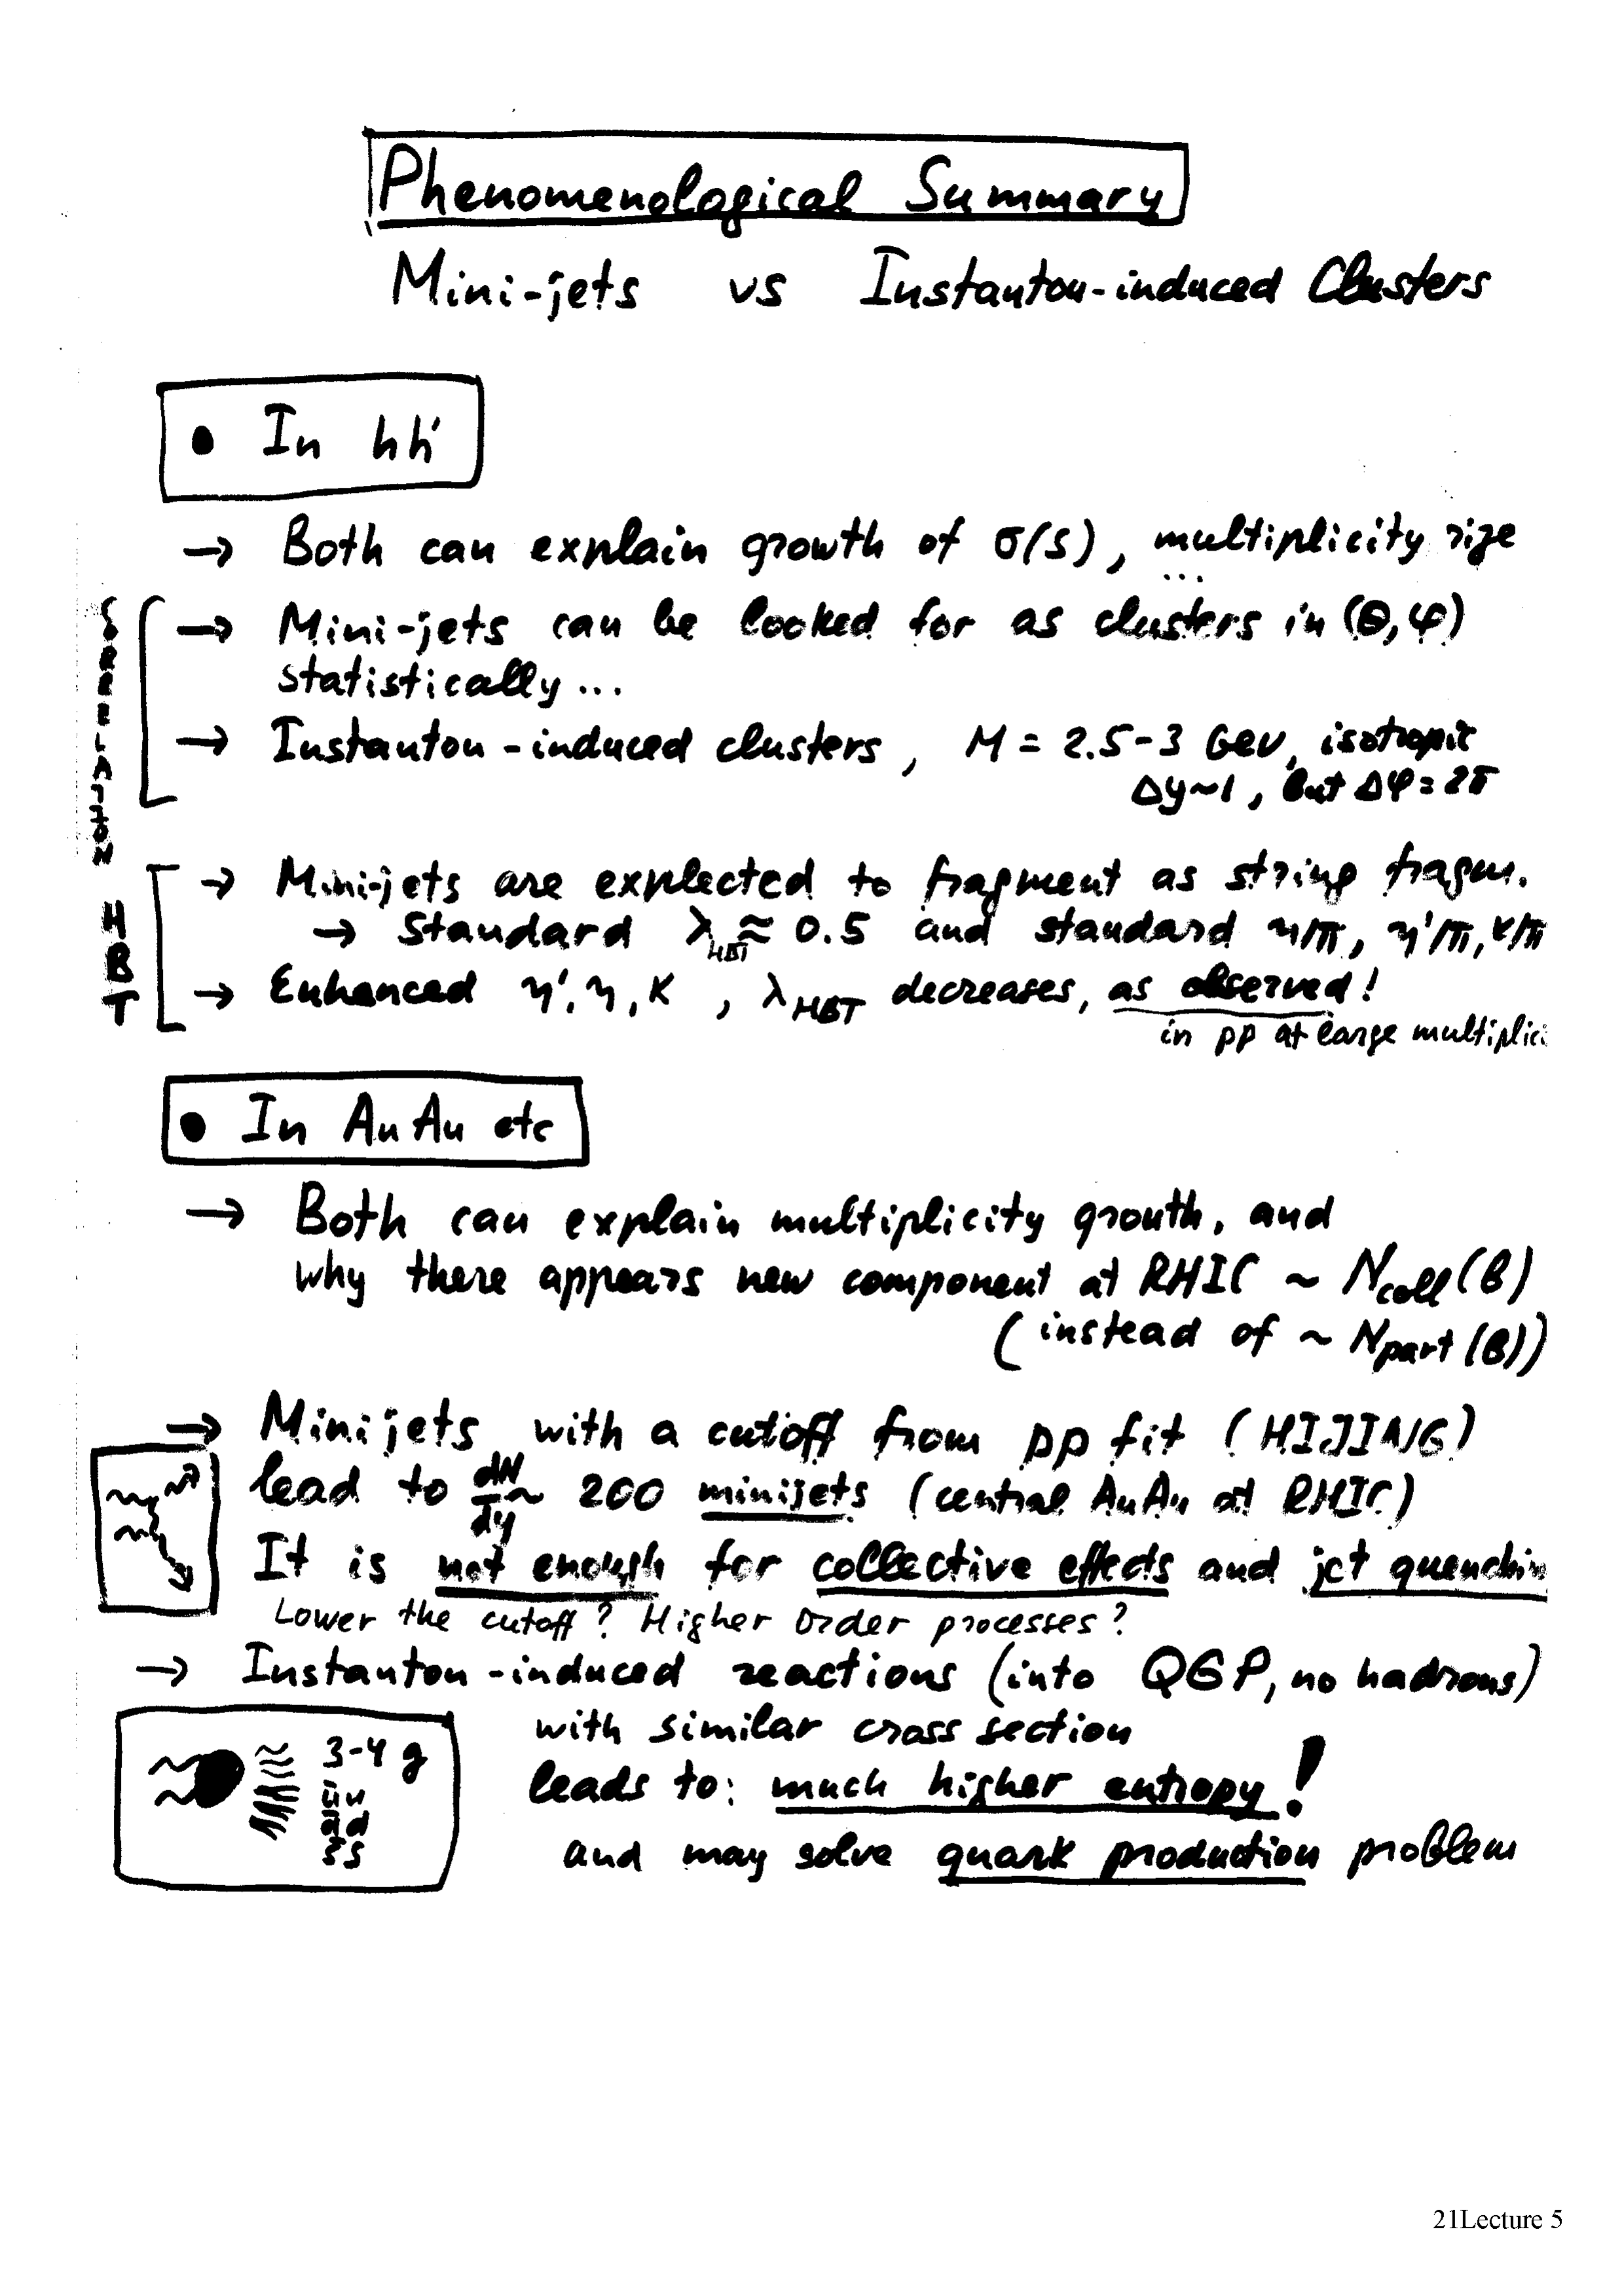 Phenomenological Summary
Mini-jets vs Instanton-induced Clusters
• In hh'
→ Both can explain growth of σ(s), multiplicity rize
...
CORRELATION
→ Mini-jets can be looked for as clusters in (θ,φ)
statistically...
→ Instanton-induced clusters, M = 2.5-3 GeV, isotropic
Δy~1, but Δφ=2π
HBT
→ Mini-jets are explected to fragment as string fragm.
→ Standard λ_HBT ≈ 0.5 and standard η/π, η'/π, K/π
→ Enhanced η', η, K, λ_HBT decreases, as observed!
in pp at large multiplici
• In AuAu etc
→ Both can explain multiplicity growth, and
why there appears new component at RHIC ~ N_coll(b)
(instead of ~ N_part(b))
→ Minijets with a cutoff from pp fit (HIJING)
lead to dN/dy ~ 200 minijets (central AuAu at RHIC)
It is not enough for collective effects and jet quenchin
Lower the cutoff? Higher order processes?
→ Instanton-induced reactions (into QGP, no hadrons)
with similar cross section
leads to: much higher entropy!
and may solve quark production problem
3-4 g
ūu
d̄d
s̄s
21Lecture 5